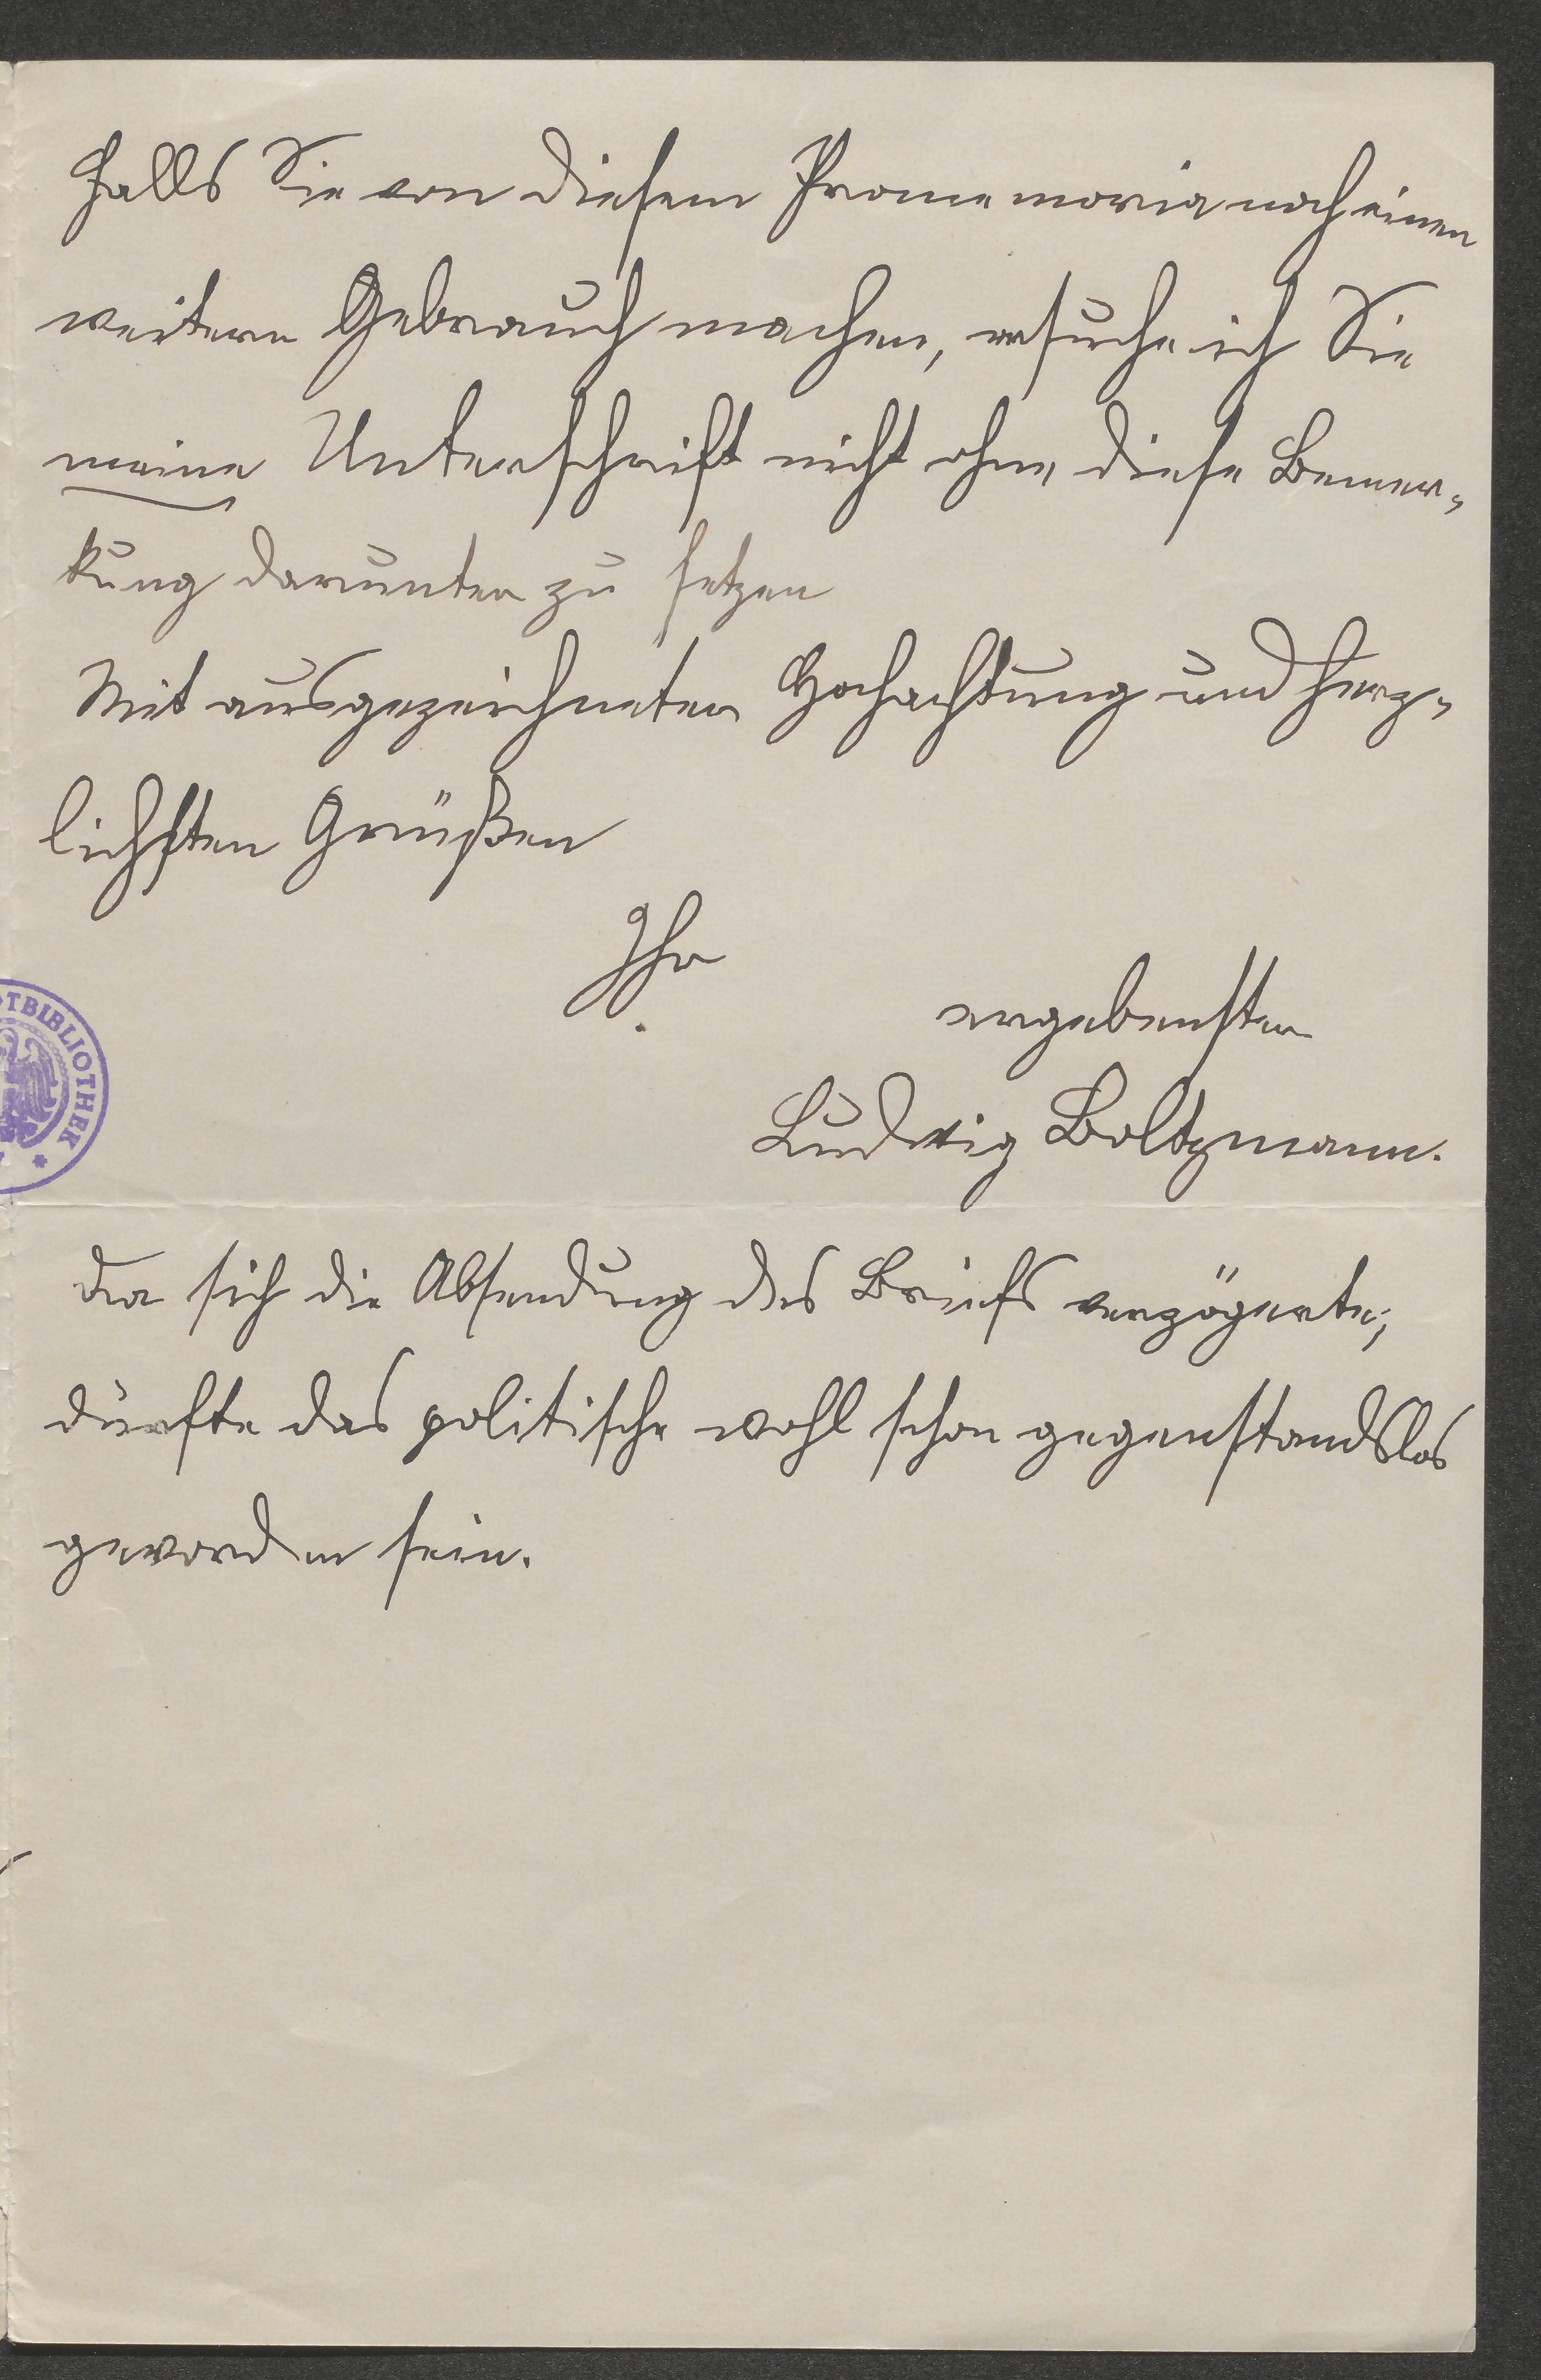 Falls Sie von diesem Promemoria noch einen
weitern Gebrauch machen, ersuche ich Sie
meine Unterschrift nicht ohne diese Bemer-
kung darunter zu setzen
Mit ausgezeichneter Hochachtung und herz-
lichsten Grüßen
Ihr
ergebenster
Ludwig Boltzmann.
TBIBLIOTHEK *
Da sich die Absendung des Briefs verzögerte,
dürfte das politische wohl schon gegenstandslos
geworden sein.